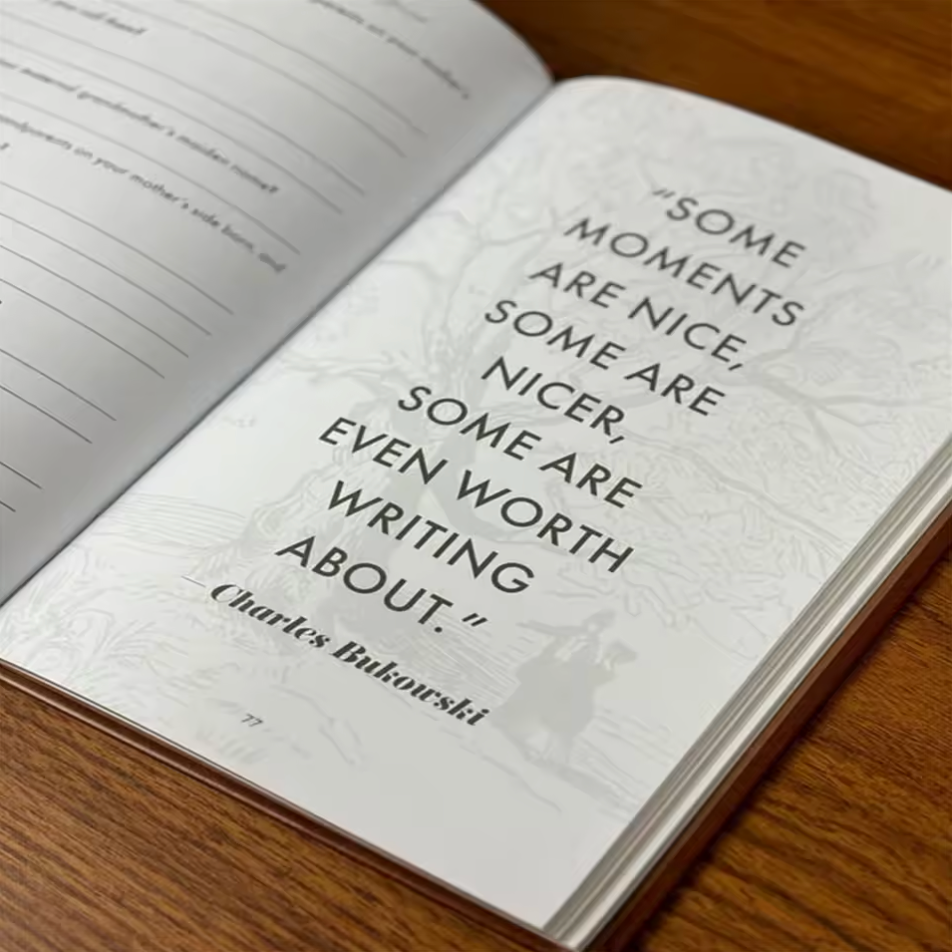 parents on your mother's
you call head
maternal grandmother's maiden name?
grandparents on your mother's side born, and
"SOME
MOMENTS
ARE NICE,
SOME ARE
NICER,
SOME ARE
EVEN WORTH
WRITING
ABOUT."
— Charles Bukowski
77